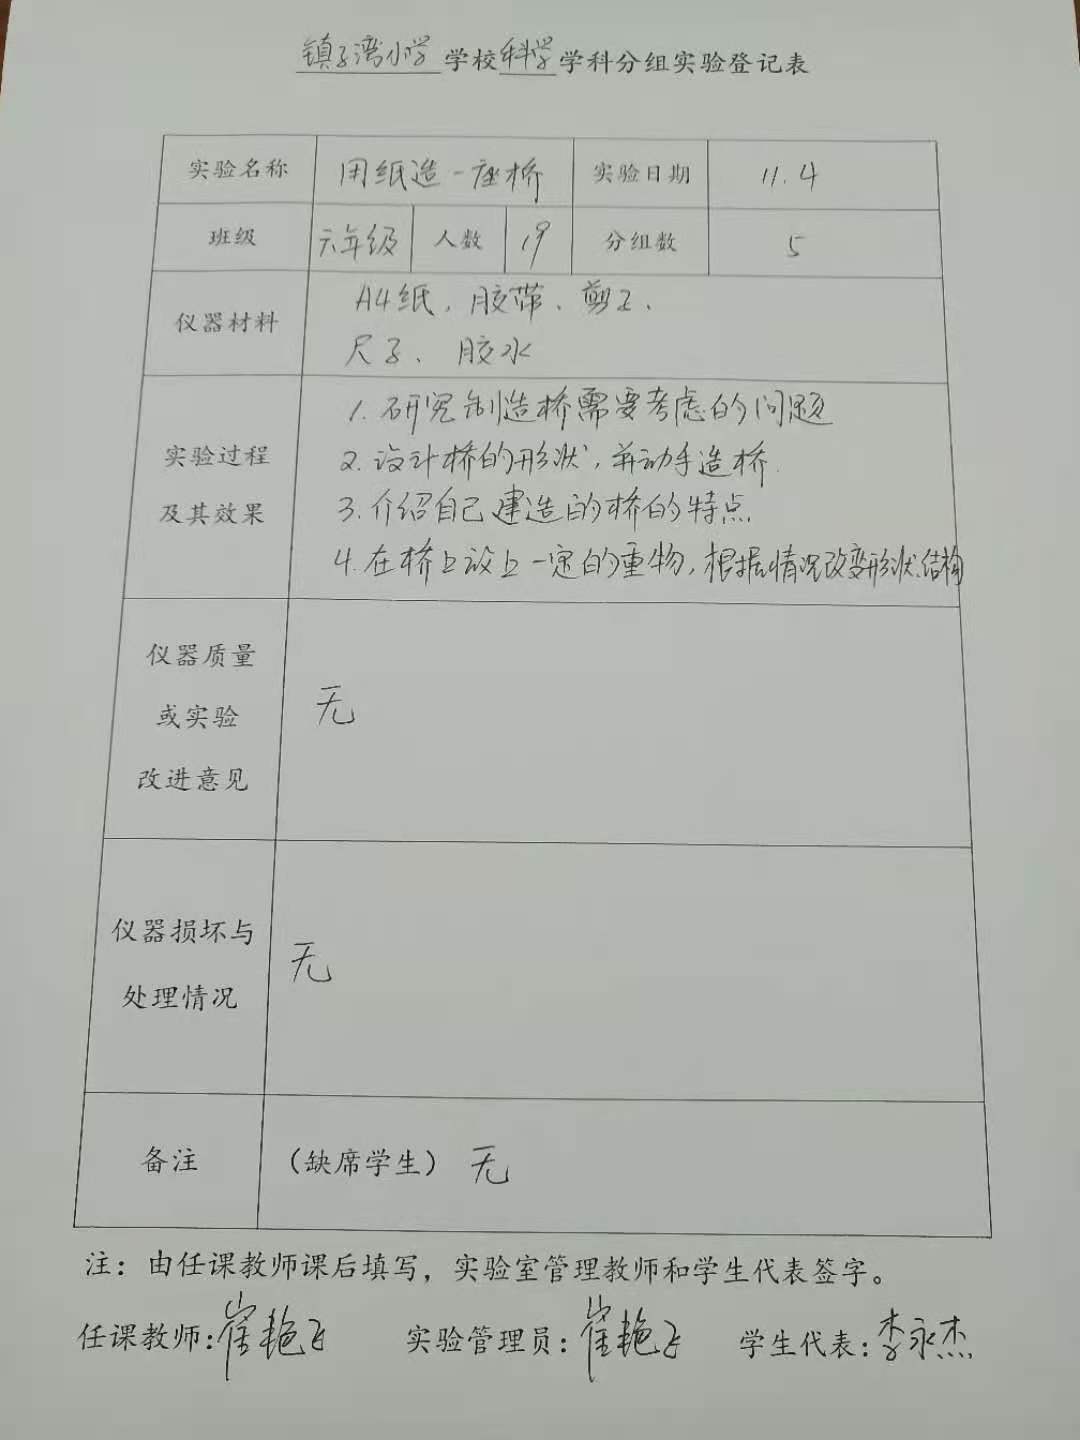 镇子湾小学学校科学学科分组实验登记表
实验名称 用纸造一座桥 实验日期 11.4
班级 六年级 人数 19 分组数 5
仪器材料
A4纸、胶带、剪子、
尺子、胶水
实验过程
及其效果
1.研究制造桥需要考虑的问题
2.设计桥的形状,并动手造桥.
3.介绍自己建造的桥的特点
4.在桥上放上一定的重物,根据情况改变形状、结构
仪器质量
或实验
改进意见
无
仪器损坏与
处理情况
无
备注 (缺席学生) 无
注:由任课教师课后填写,实验室管理教师和学生代表签字。
任课教师:崔艳飞 实验管理员:崔艳飞 学生代表:李永杰